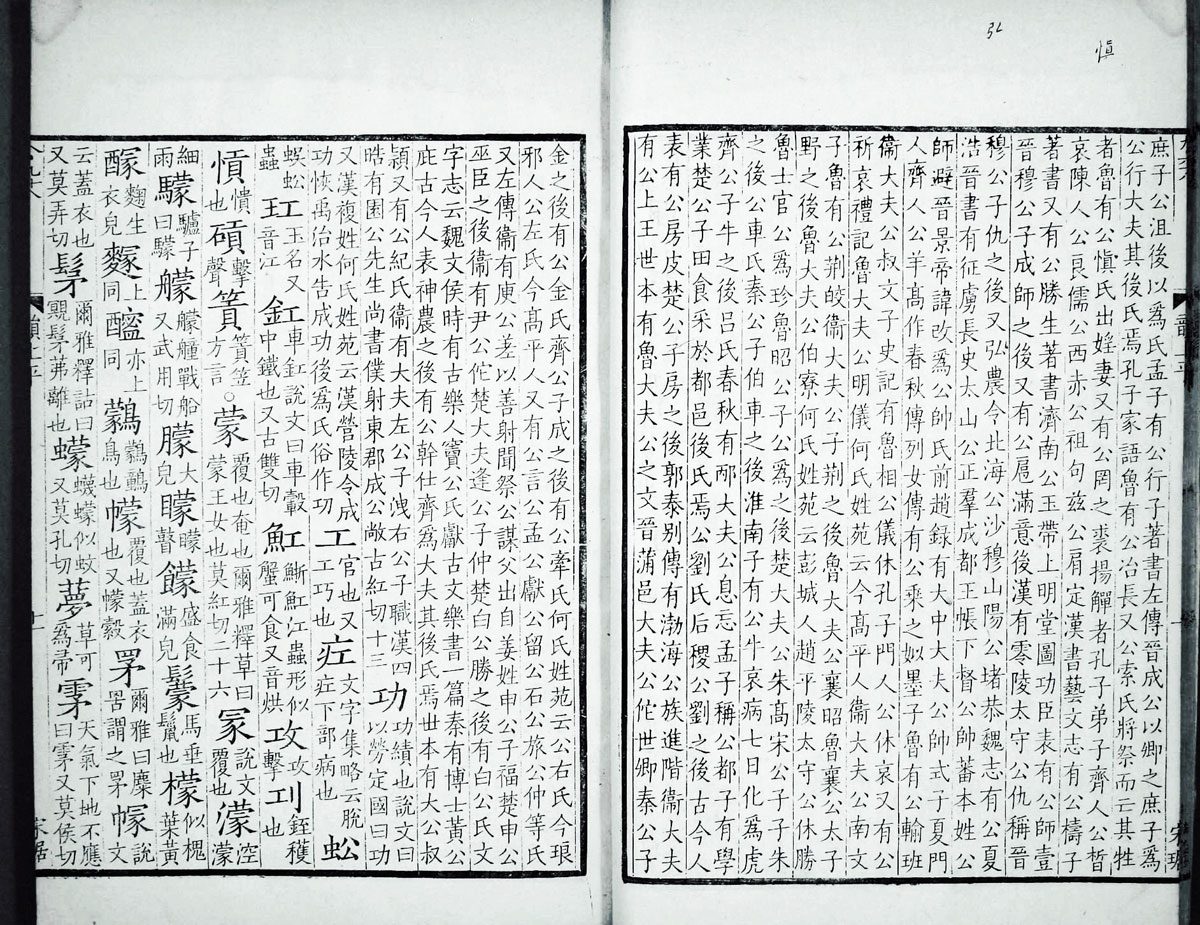 弘
慎
庶子公沮後以爲氏孟子有公行子著書左傳晉成公以卿之庶子爲
公行大夫其後氏焉孔子家語魯有公冶長又公索氏將祭而云其牲
者魯有公慎氏出婬妻又有公罔之裘揚觶者孔子弟子齊人公晳
哀陳人公良儒公西赤公祖句兹公肩定漢書藝文志有公檮子
著書又有公勝生著書濟南公玉帶上明堂圖功臣表有公師壹
晉穆公子成師之後又有公扈滿意後漢有零陵太守公仇稱晉
穆公子仇之後又弘農令北海公沙穆山陽公堵恭魏志有公夏
浩晉書有征虜長史太山公正羣成都王帳下督公師蕃本姓公
師避晉景帝諱改爲公帥氏前趙録有大中大夫公帥式子夏門
人齊人公羊高作春秋傳列女傳有公乘之姒墨子魯有公輸班
衞大夫公叔文子史記有魯相公儀休孔子門人公休哀又有公
祈哀禮記魯大夫公明儀何氏姓苑云今高平人衞大夫公南文
子魯有公荆皎衞大夫公子荆之後魯大夫公襄昭魯襄公太子
野之後魯大夫公伯寮何氏姓苑云彭城人趙平陵太守公休勝
魯士官公爲珍魯昭公子公爲之後楚大夫公朱高宋公子子朱
之後公車氏秦公子伯車之後淮南子有公牛哀病七日化爲虎
齊公子牛之後吕氏春秋有邴大夫公息忘孟子稱公都子有學
業楚公子田食采於都邑後氏焉公劉氏后稷公劉之後古今人
表有公房皮楚公子房之後郭泰别傳有渤海公族進階衞大夫
有公上王世本有魯大夫公之文晉蒲邑大夫公佗世卿秦公子
金之後有公金氏齊公子成之後有公牽氏何氏姓苑云公右氏今琅
邪人公左氏今高平人又有公言公孟公獻公留公石公旅公仲等氏
又左傳衞有庾公差以善射聞祭公謀父出自姜姓申公子福楚申公
巫臣之後衞有尹公佗楚大夫逢公子仲楚白公勝之後有白公氏文
字志云魏文侯時有古樂人竇公氏獻古文樂書一篇秦有博士黄公
庇古今人表神農之後有公幹仕齊爲大夫其後氏焉世本有大公叔
頴又有公紀氏衞有大夫左公子洩右公子職漢四
晧有園公先生尚書僕射東郡成公敞古紅切十三
功 功績也說文曰以勞定國曰功
又漢複姓何氏姓苑云漢營陵令成功恢禹治水告成功後爲氏俗作㓛
工 官也又工巧也
疘 文字集略云脫疘下部病也
蚣 蜈蚣蟲
玒 玉名又音江
釭 車釭說文曰車轂中鐵也又古雙切
魟 鱂魟江蟲形似蟹可食又音烘
攻 攻擊
㓚 銍穫也
愩 憒也
碽 擊聲
篢 篢笠方言。
蒙 覆也奄也爾雅釋草曰蒙王女也莫紅切二十六
冡 說文覆也
濛 涳濛細雨
驡 驢子曰驡
艨 艨艟戰船又武用切
朦 大皃
矇 矇瞽
饛 盛食滿皃
鬉 馬垂鬣也
檬 似槐葉黄
醿 麴生衣皃
䴿 上同
醯 亦上同
鸏 鸏鷊鳥也
幪 覆也蓋衣也又幪縠
罞 爾雅曰麋罟謂之罞
幏 說文云蓋衣也
髳 爾雅釋詁曰覭髳茀離也又莫弄切
蠓 蠛蠓似蚊又莫孔切
夢 草可爲帚
雺 天氣下地不應曰雺又莫侯切